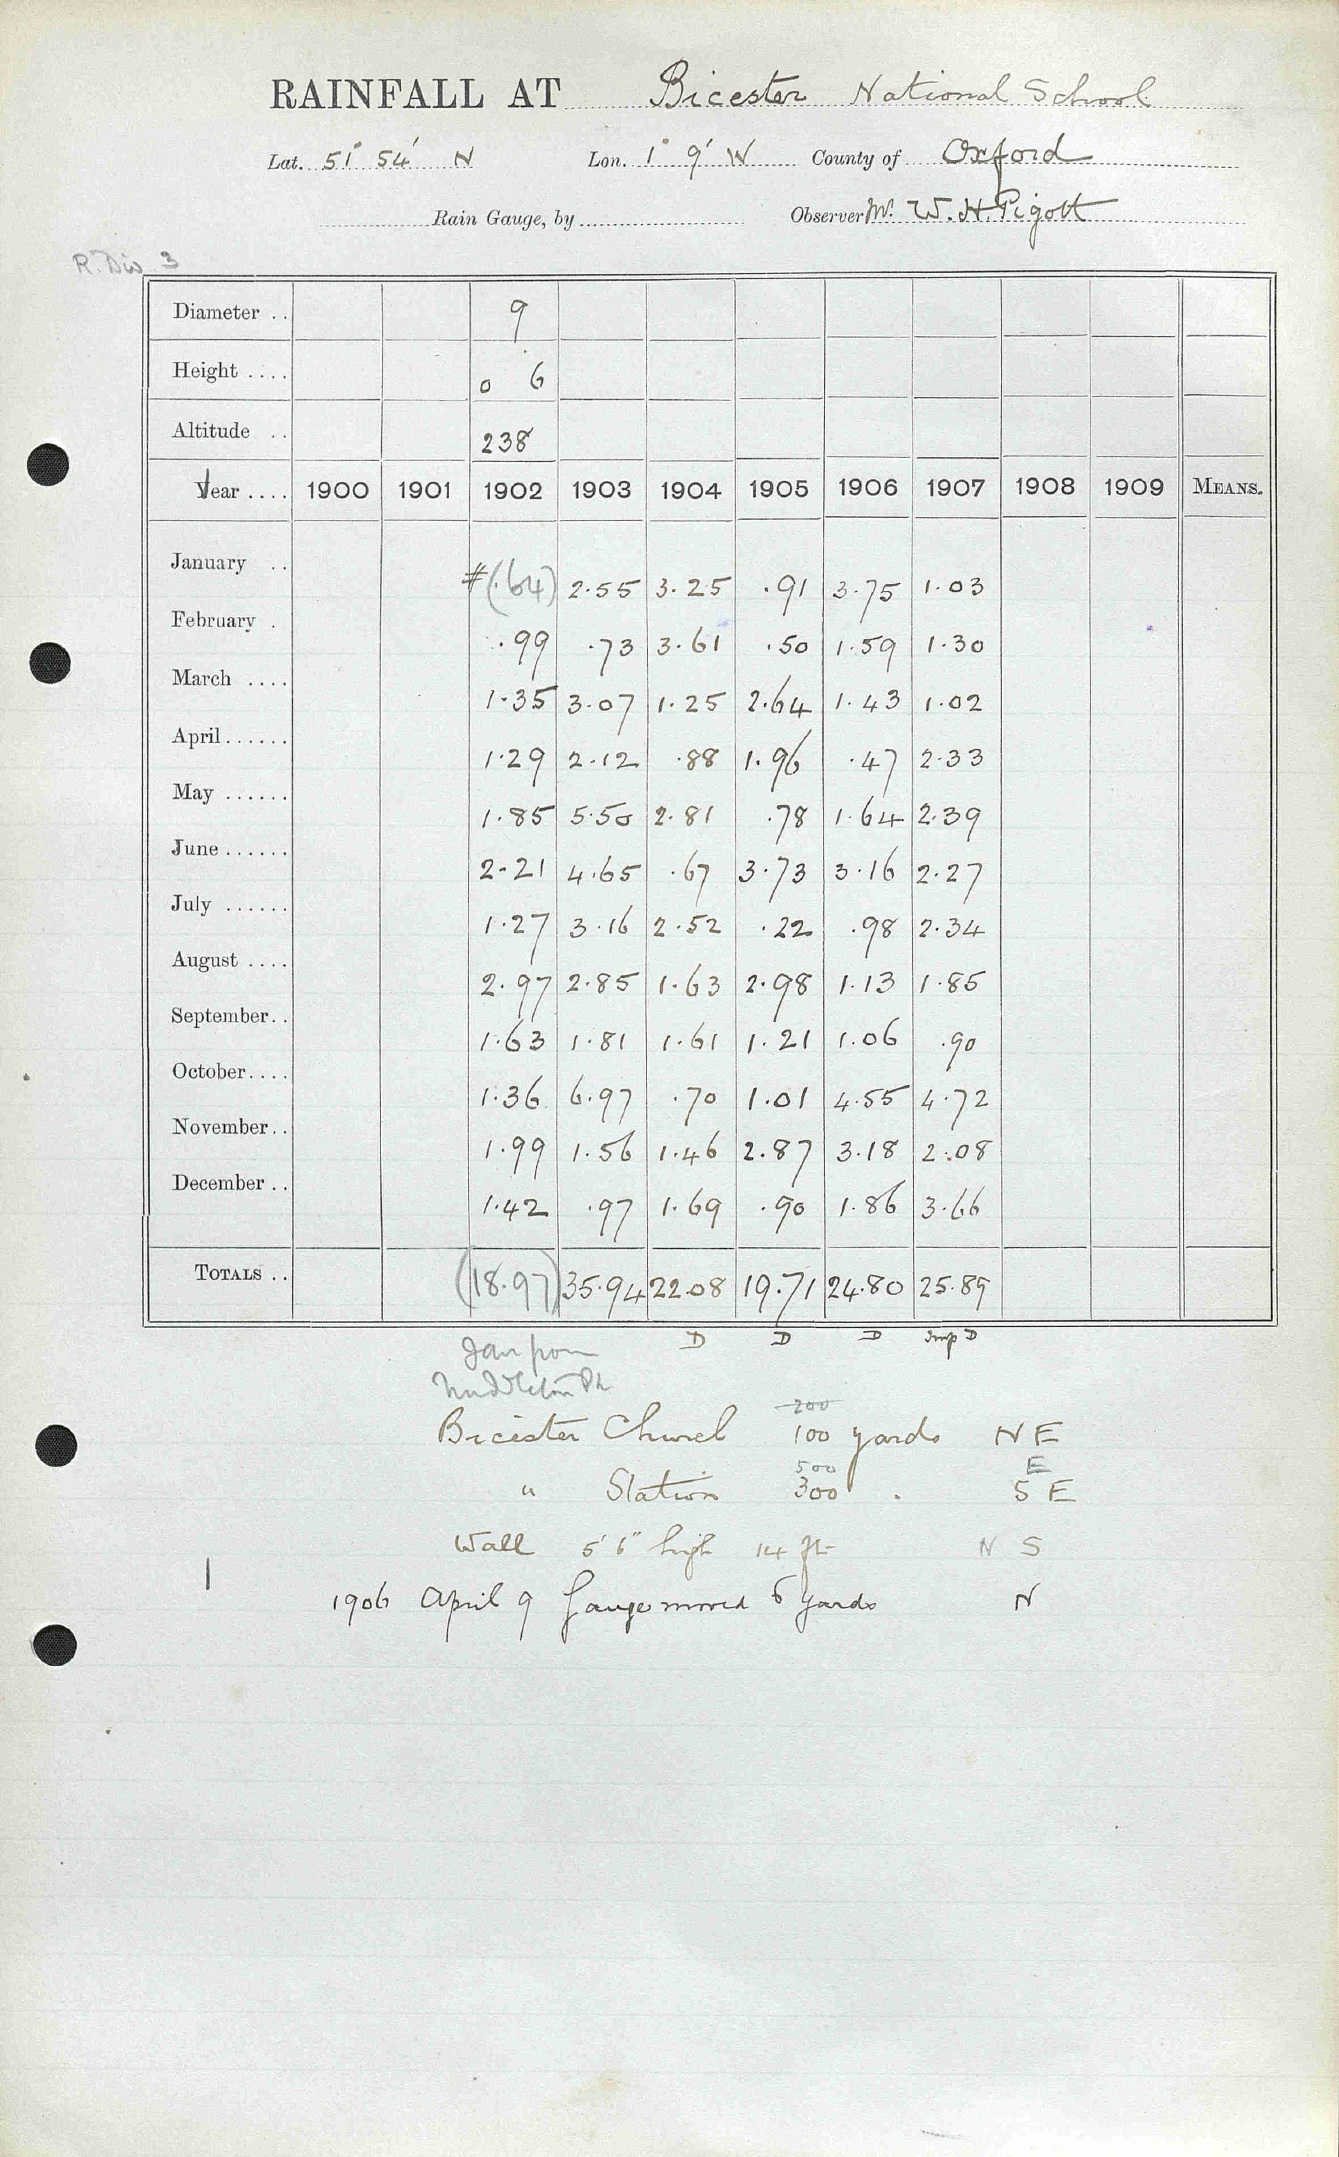 RAINFALL AT Bicester National School
Lat. 51° 54' N Lon. 1° 9' W County of Oxford
Rain Gauge, by Observer Mr. W. H. Pigott
R. Div 3
Diameter .. 9
Height .... 0 6
Altitude .. 238
Year .... 1900 1901 1902 1903 1904 1905 1906 1907 1908 1909 MEANS.
January .. #(.64) 2.55 3.25 .91 3.75 1.03
February . .99 .73 3.61 .50 1.59 1.30
March .... 1.35 3.07 1.25 2.64 1.43 1.02
April...... 1.29 2.12 .88 1.96 .47 2.33
May ...... 1.85 5.50 2.81 .78 1.64 2.39
June ...... 2.21 4.65 .67 3.73 3.16 2.27
July ...... 1.27 3.16 2.52 .22 .98 2.34
August .... 2.97 2.85 1.63 2.98 1.13 1.85
September.. 1.63 1.81 1.61 1.21 1.06 .90
October.... 1.36 6.97 .70 1.01 4.55 4.72
November.. 1.99 1.56 1.46 2.87 3.18 2.08
December .. 1.42 .97 1.69 .90 1.86 3.66
TOTALS .. (18.97) 35.94 22.08 19.71 24.80 25.89
D D D Imp D
Jan from
Middleton Pk
200
Bicester Church 100 yards N E
500 E
" Station 300 " S E
Wall 5' 6" high 14 ft N S
1906 April 9 Gauge moved 6 yards N